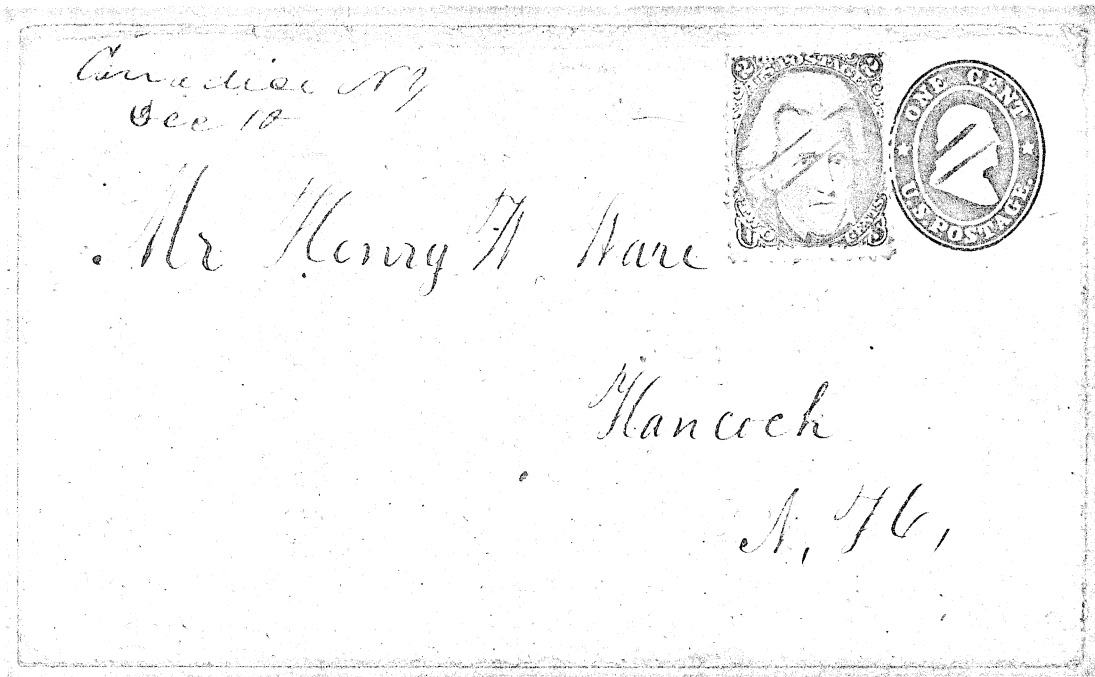 Canadice NY
Dec 10
U.S. POSTAGE
2 2
ONE CENT
U.S. POSTAGE.
Mr Henry W. Ware
Hancock
N, H,